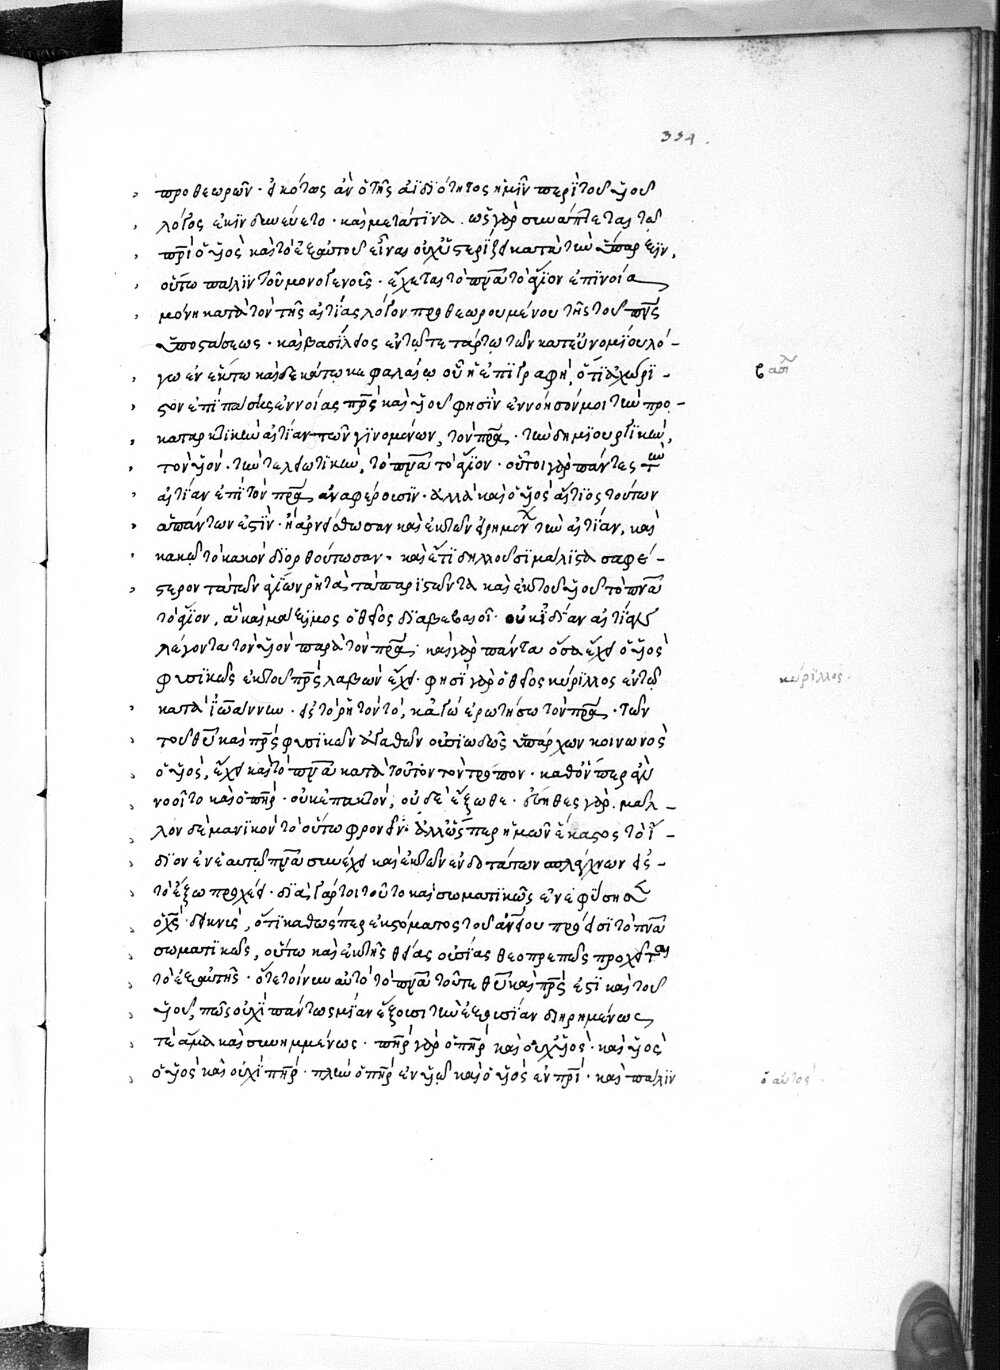 334.
προθεωρῶν· εἰκότως ἂν ὁ τῆς ἀϊδιότητος ἡμῖν περὶ τοῦ ὑοῦ
λόγος ἐκινδυνεύετο· καὶ μεταπῖνα. ὡς γὰρ συνάπτεται τῶ
πρὶ ὁ ὑὸς καὶ τὸ ἐξ αὐτοῦ εἶναι οὐχ ὑστερίζει κατὰ τὴν ὕπαρξιν,
οὕτω πάλιν τοῦ μονογενοῦς· ἔχεται τὸ πνᾶ τὸ ἅγιον ἐπινοία
μόνη κατὰ τὸν τῆς αἰτίας λόγον προθεωρουμένου τῆς τοῦ πνς
ὑποστάσεως· καὶ βασίλειος ἐν τῶ τετάρτω τῶν κατ' εὐνομίου λό-
γω ἐν ἑκκαιδεκάτω κεφαλαίω οὗ ἡ ἐπιγραφὴ, ὅτι ἀχώρι-
στον ἐπὶ πάσης ἐννοίας πρς καὶ ὑοῦ φησὶν ἐννόησόν μοι τὴν προ-
καταρκτικὴν αἰτίαν τῶν γινομένων, τὸν πρα· τὴν δημιουργικὴν,
τὸν ὑόν· τὴν τελειωτικὴν, τὸ πνᾶ τὸ ἅγιον· οὗτοι γὰρ πάντες τὴν
αἰτίαν ἐπὶ τὸν πρα ἀναφέρουσιν· ἀλλὰ καὶ ὁ ὑὸς αἴτιος τούτων
ἁπάντων ἐστίν· ἢ ἀρνείσθωσαν καὶ ἐκ τῶν εἰρημένων τὴν αἰτίαν, καὶ
κακῶ τὸ κακὸν διορθούτωσαν· καὶ ἔτι δηλοῦσι μάλιστα σαφέ-
στερον τὰ τῶν ἁγίων ῥητὰ τὰ παριστῶντα καὶ ἐκ τοῦ ὑοῦ τὸ πνᾶ
τὸ ἅγιον, ἃ καὶ μάξιμος ὁ θεῖος διαβεβαιοῖ· οὐκ ἰδίαν αἰτίαν
λέγοντα τὸν ὑὸν παρὰ τὸν πρα· καὶ γὰρ πάντα ὅσα ἔχει ὁ ὑὸς
φυσικῶς ἐκ τοῦ πρς λαβὼν ἔχει· φησὶ γὰρ ὁ θεῖος κύριλλος ἐν τῶ
κατὰ ἰωάννην· εἰς τὸ ῥητὸν τὸ, κἀγὼ ἐρωτήσω τὸν πρα· τῶν
τοῦ θῦ καὶ πρς φυσικῶν ἀγαθῶν οὐσιωδῶς ὑπάρχων κοινωνὸς
ὁ ὑὸς, ἔχει καὶ τὸ πνᾶ κατὰ τοῦτον τὸν τρόπον· καθ' ὅνπερ ἂν
νοοῖτο καὶ ὁ πηρ· οὐκ ἐπακτὸν, οὐδὲ ἔξωθεν· εὔηθες γὰρ. μᾶλ-
λον δὲ μανικὸν τὸ οὕτω φρονεῖν· ἀλλ' ὥσπερ ἡμῶν ἕκαστος τὸ ἴ-
διον ἐν ἑαυτῶ πνᾶ συνέχει καὶ ἐκ τῶν ἐνδοτάτων σπλάγχνων εἰς
τὸ ἔξω προχέει· διὰ γάρ τοι τοῦτο καὶ σωματικῶς ἐνεφύσησεν
ὁ χς· δεικνὺς, ὅτι καθώσπερ ἐκ στόματος τοῦ ἀνείου πρόεισι τὸ πνᾶ
σωματικῶς, οὕτω καὶ ἐκ τῆς θείας οὐσίας θεοπρεπῶς προχεῖται
τὸ ἐξ αὐτῆς· ὅτε τοίνυν αὐτὸ τὸ πνᾶ τοῦτε θῦ καὶ πρς ἐστι καὶ τοῦ
ὑοῦ, πῶς οὐχὶ πάντως μίαν ἕξουσι τὴν ἐξουσίαν διηρημένως
τε ἅμα καὶ συνημμένως· πηρ γὰρ ὁ πηρ καὶ οὐχ ὑός· καὶ ὑὸς
ὁ ὑὸς καὶ οὐχὶ πηρ· πλὴν ὁ πηρ ἐν ὑῶ καὶ ὁ ὑὸς ἐν πρὶ· καὶ πάλιν
βασιλ
κύριλλος.
ὁ αὐτὸς